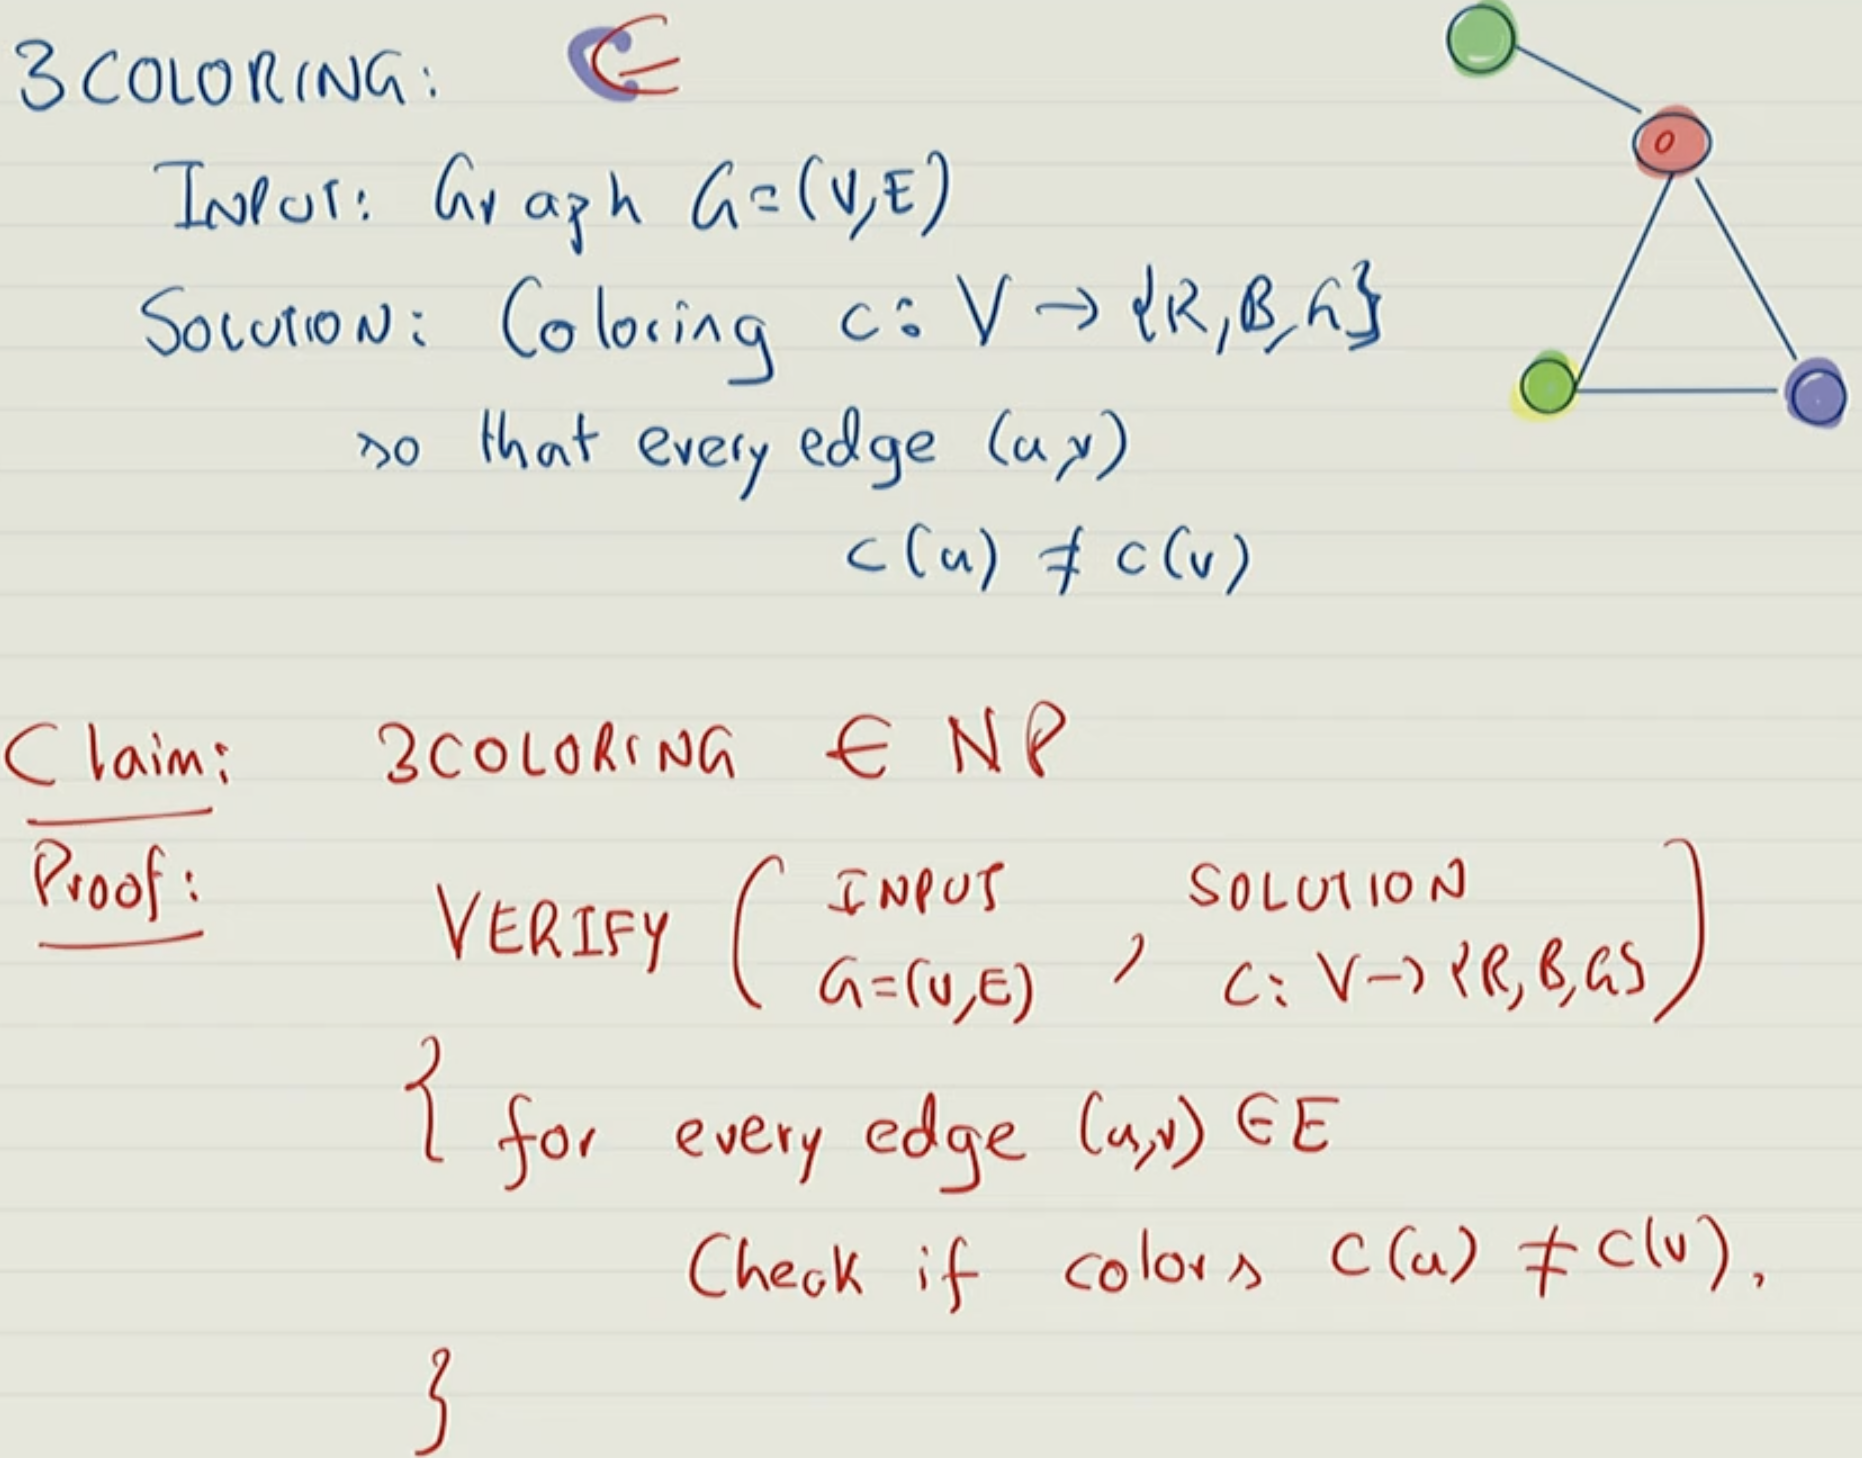 3COLORING: ∈
INPUT: Graph G=(V,E)
SOLUTION: Coloring c: V → {R,B,G}
so that every edge (u,v)
c(u) ≠ c(v)
Claim: 3COLORING ∈ NP
Proof:
VERIFY ( INPUT , SOLUTION
G=(V,E) C: V→{R,B,G} )
{ for every edge (u,v) ∈ E
Check if colors C(u) ≠ C(v).
}